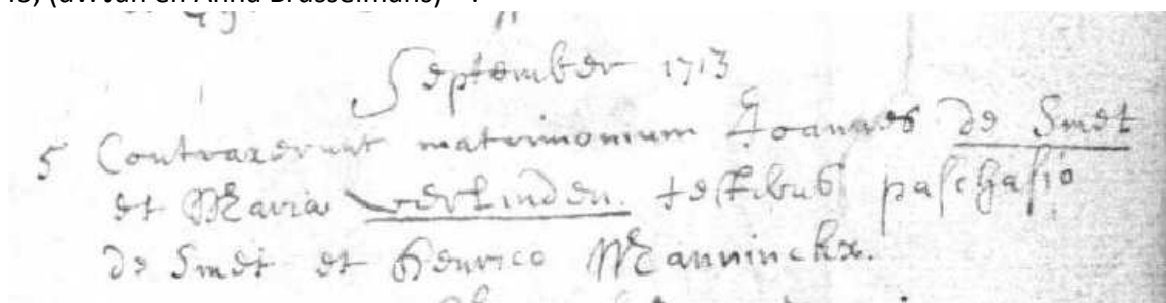 September 1713
5 Contraxerunt matrimonium Joannes de Smet
et Maria verlinden. testibus paschasio
de Smet et Henrico Manninckx.